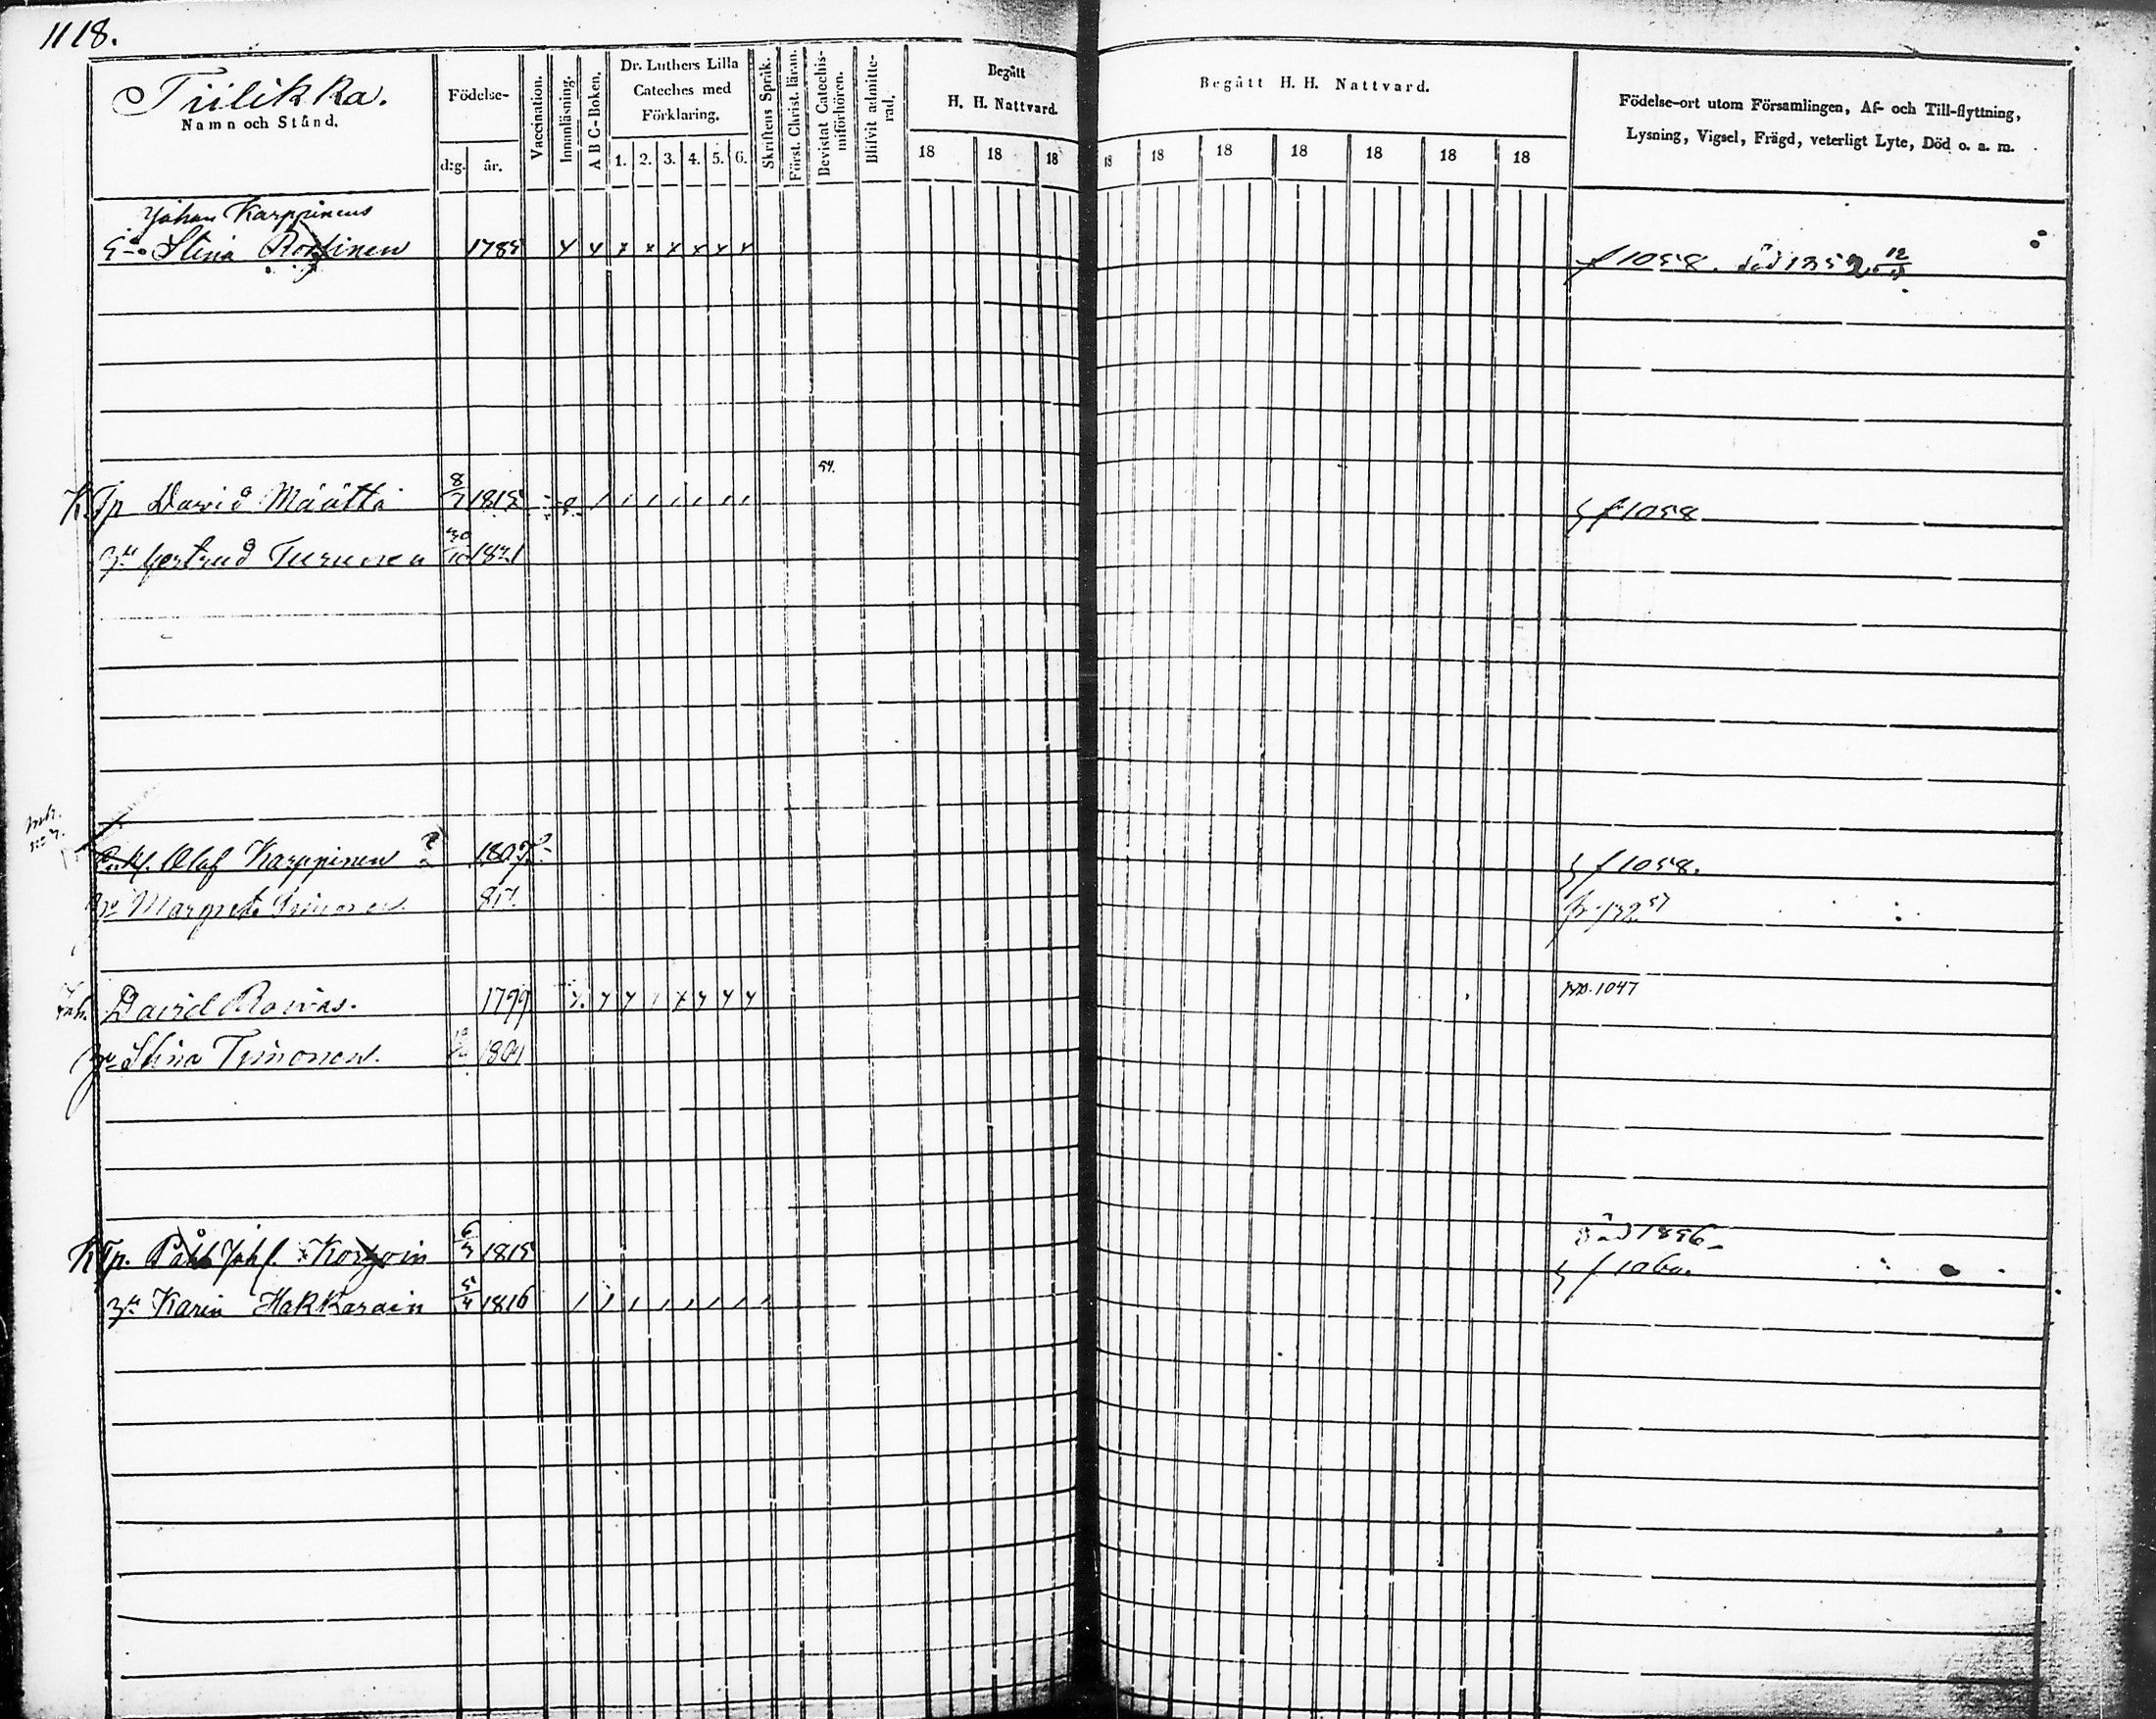 1118.
Tiilikka.
Namn och Stånd.
Födelse-
d:g. år.
Vaccination.
Innanläsning.
A B C-Boken.
Dr. Luthers Lilla
Cateches med
Förklaring.
1. 2. 3. 4. 5. 6.
Skriftens Språk.
Först. Christ. läran.
Bevistat Catechis-
miförhören.
Blifvit admitte-
rad.
Begått
H. H. Nattvard.
18 18 18
Begått H. H. Nattvard.
18 18 18 18 18 18 18
Födelse-ort utom Församlingen, Af- och Till-flyttning,
Lysning, Vigsel, Frägd, veterligt Lyte, Död o. a. m.
Johan Karppinens
Stina 1785 f 1058. död 1852 12/
54.
K.Tp David Määttä 8/7 1815 f 1058
Gertrud Turunen 30/10 1821
Olof Karppinen 1807 f 1058.
Margret. Timonen 817.
David Rowas. 1799 1047
Stina Timonen.
död 1856
K Tp. Påhl Joh. 1815 f 1060.
Karin Hakkarain 5/4 1816